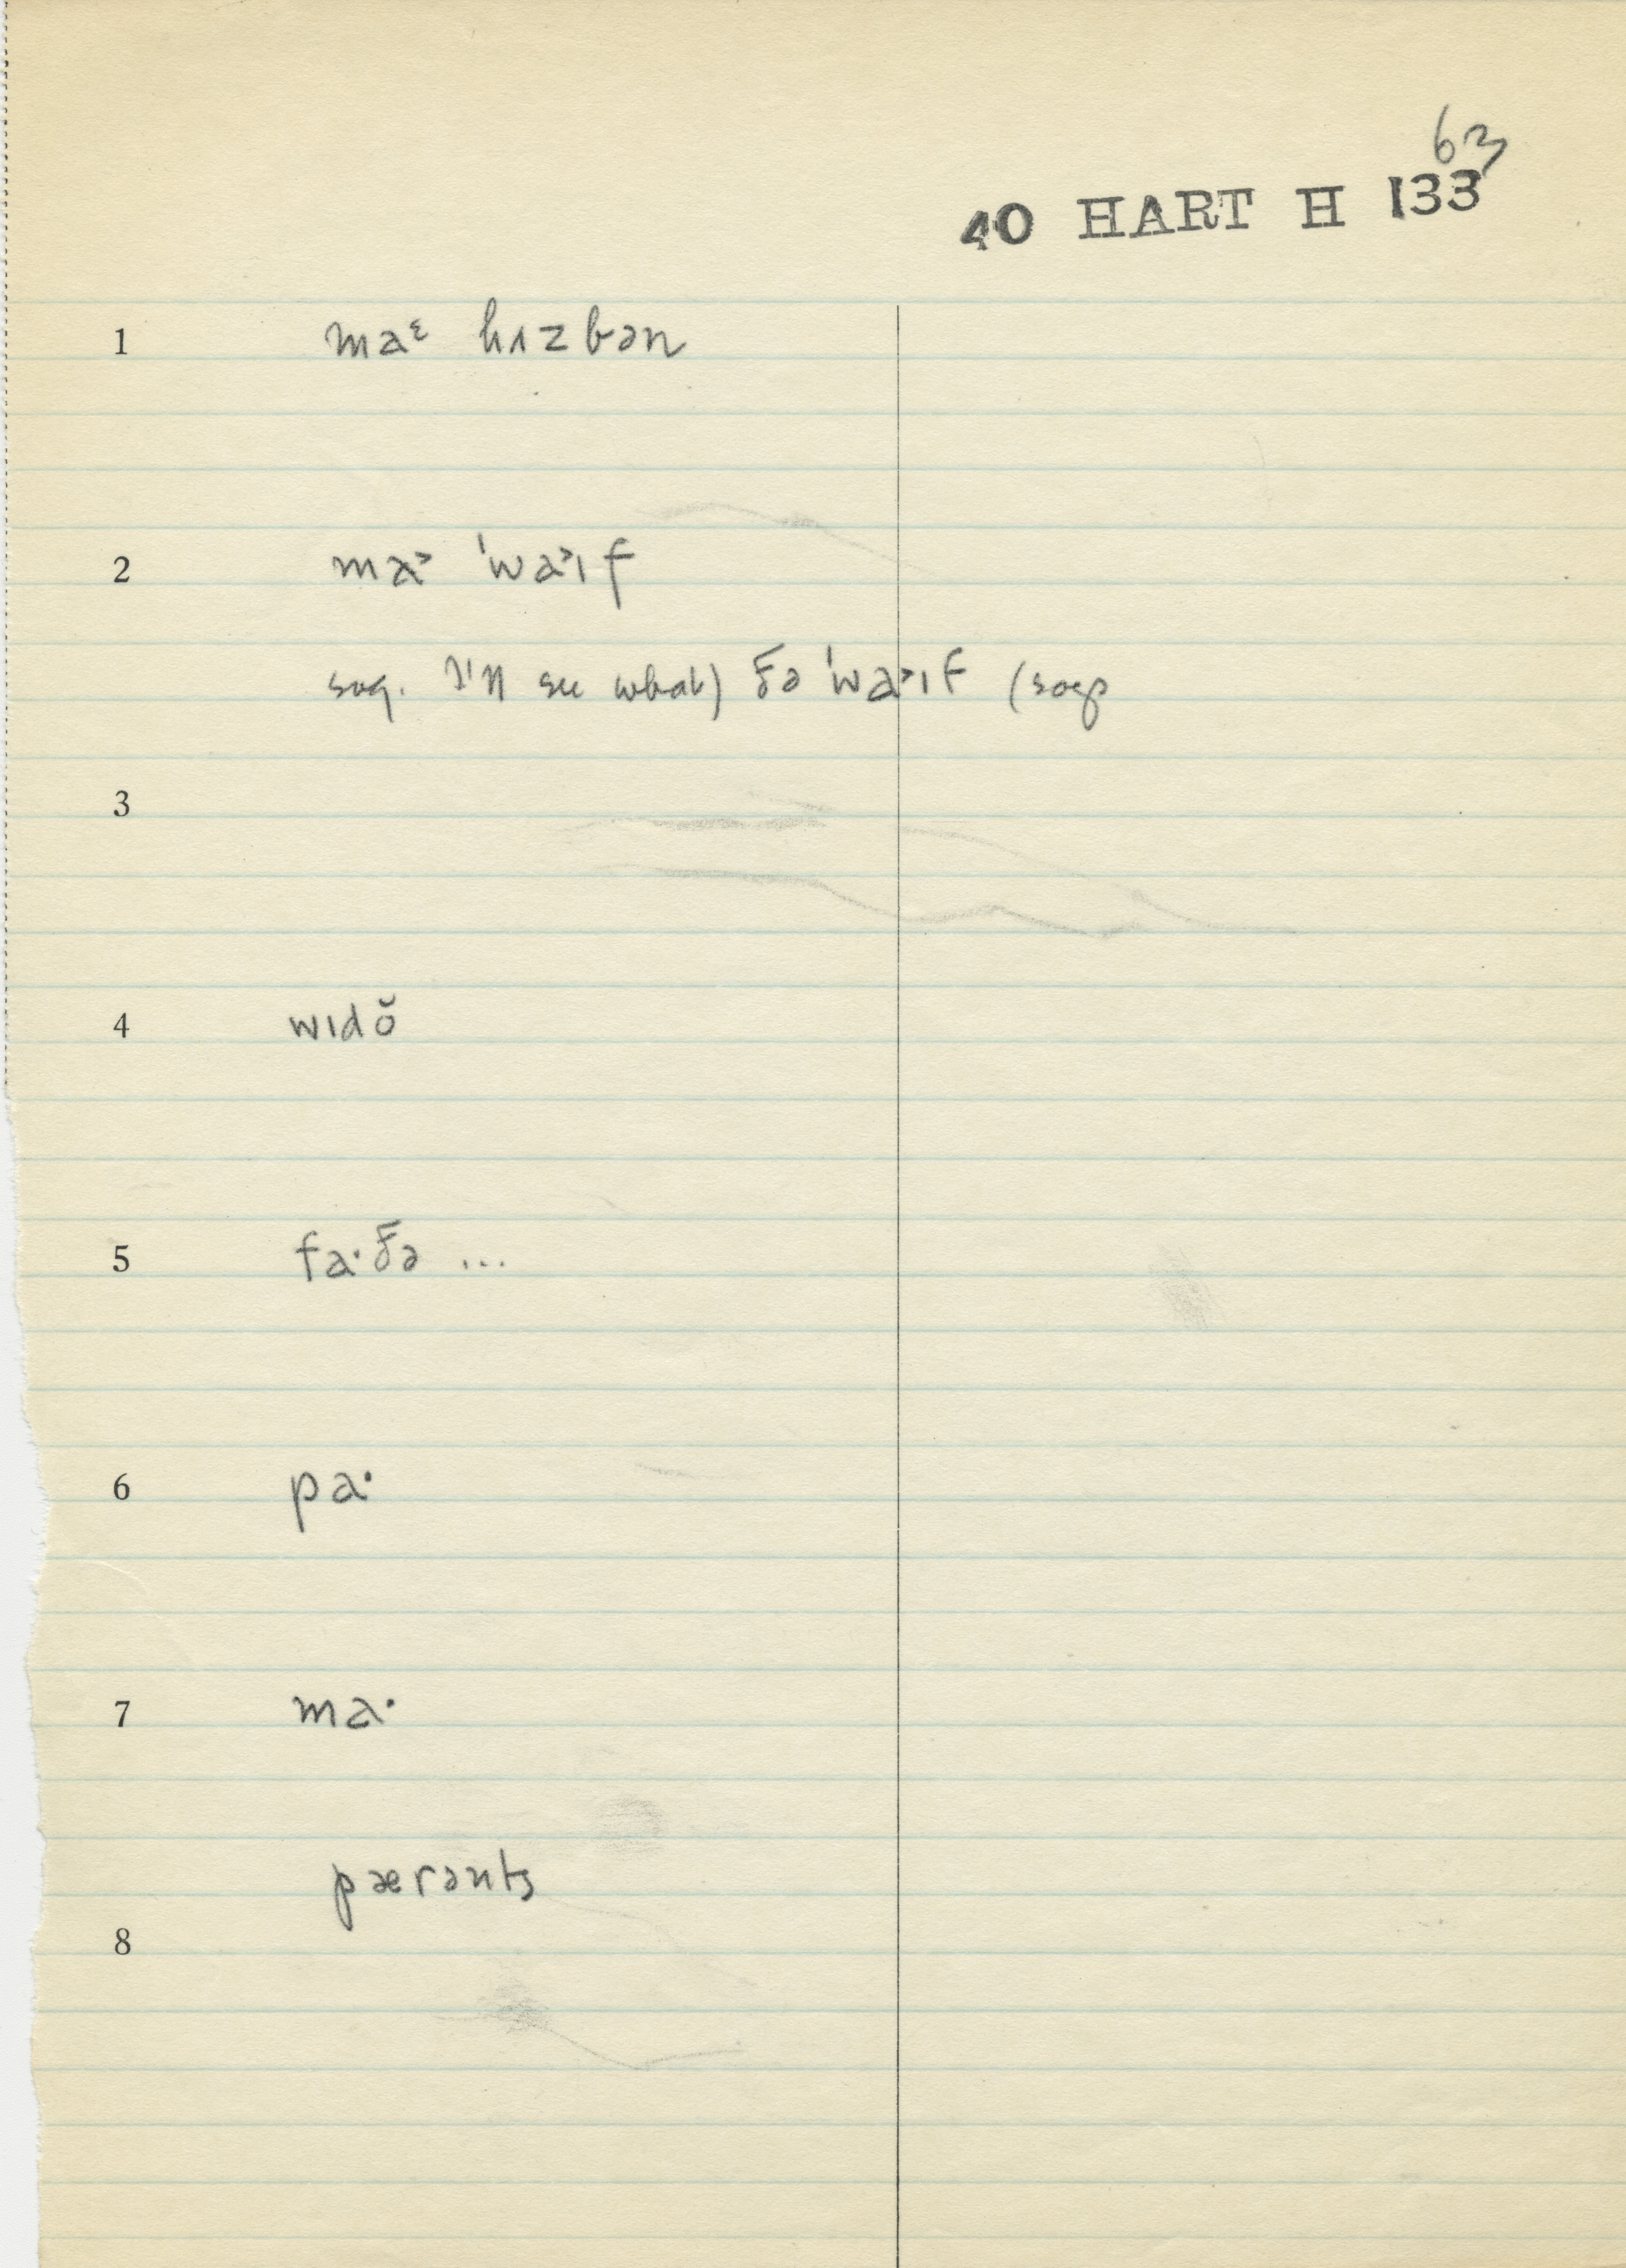 63
40 HART H 133
1 maᵋ hɪzbən
2 ma˃ 'wa˃ɪf
sug. I'll see what) ðə 'wa˃ɪf (says
3
4 wɪdŏ
5 fa·ðə ...
6 pa·
7 ma·
pærənts
8